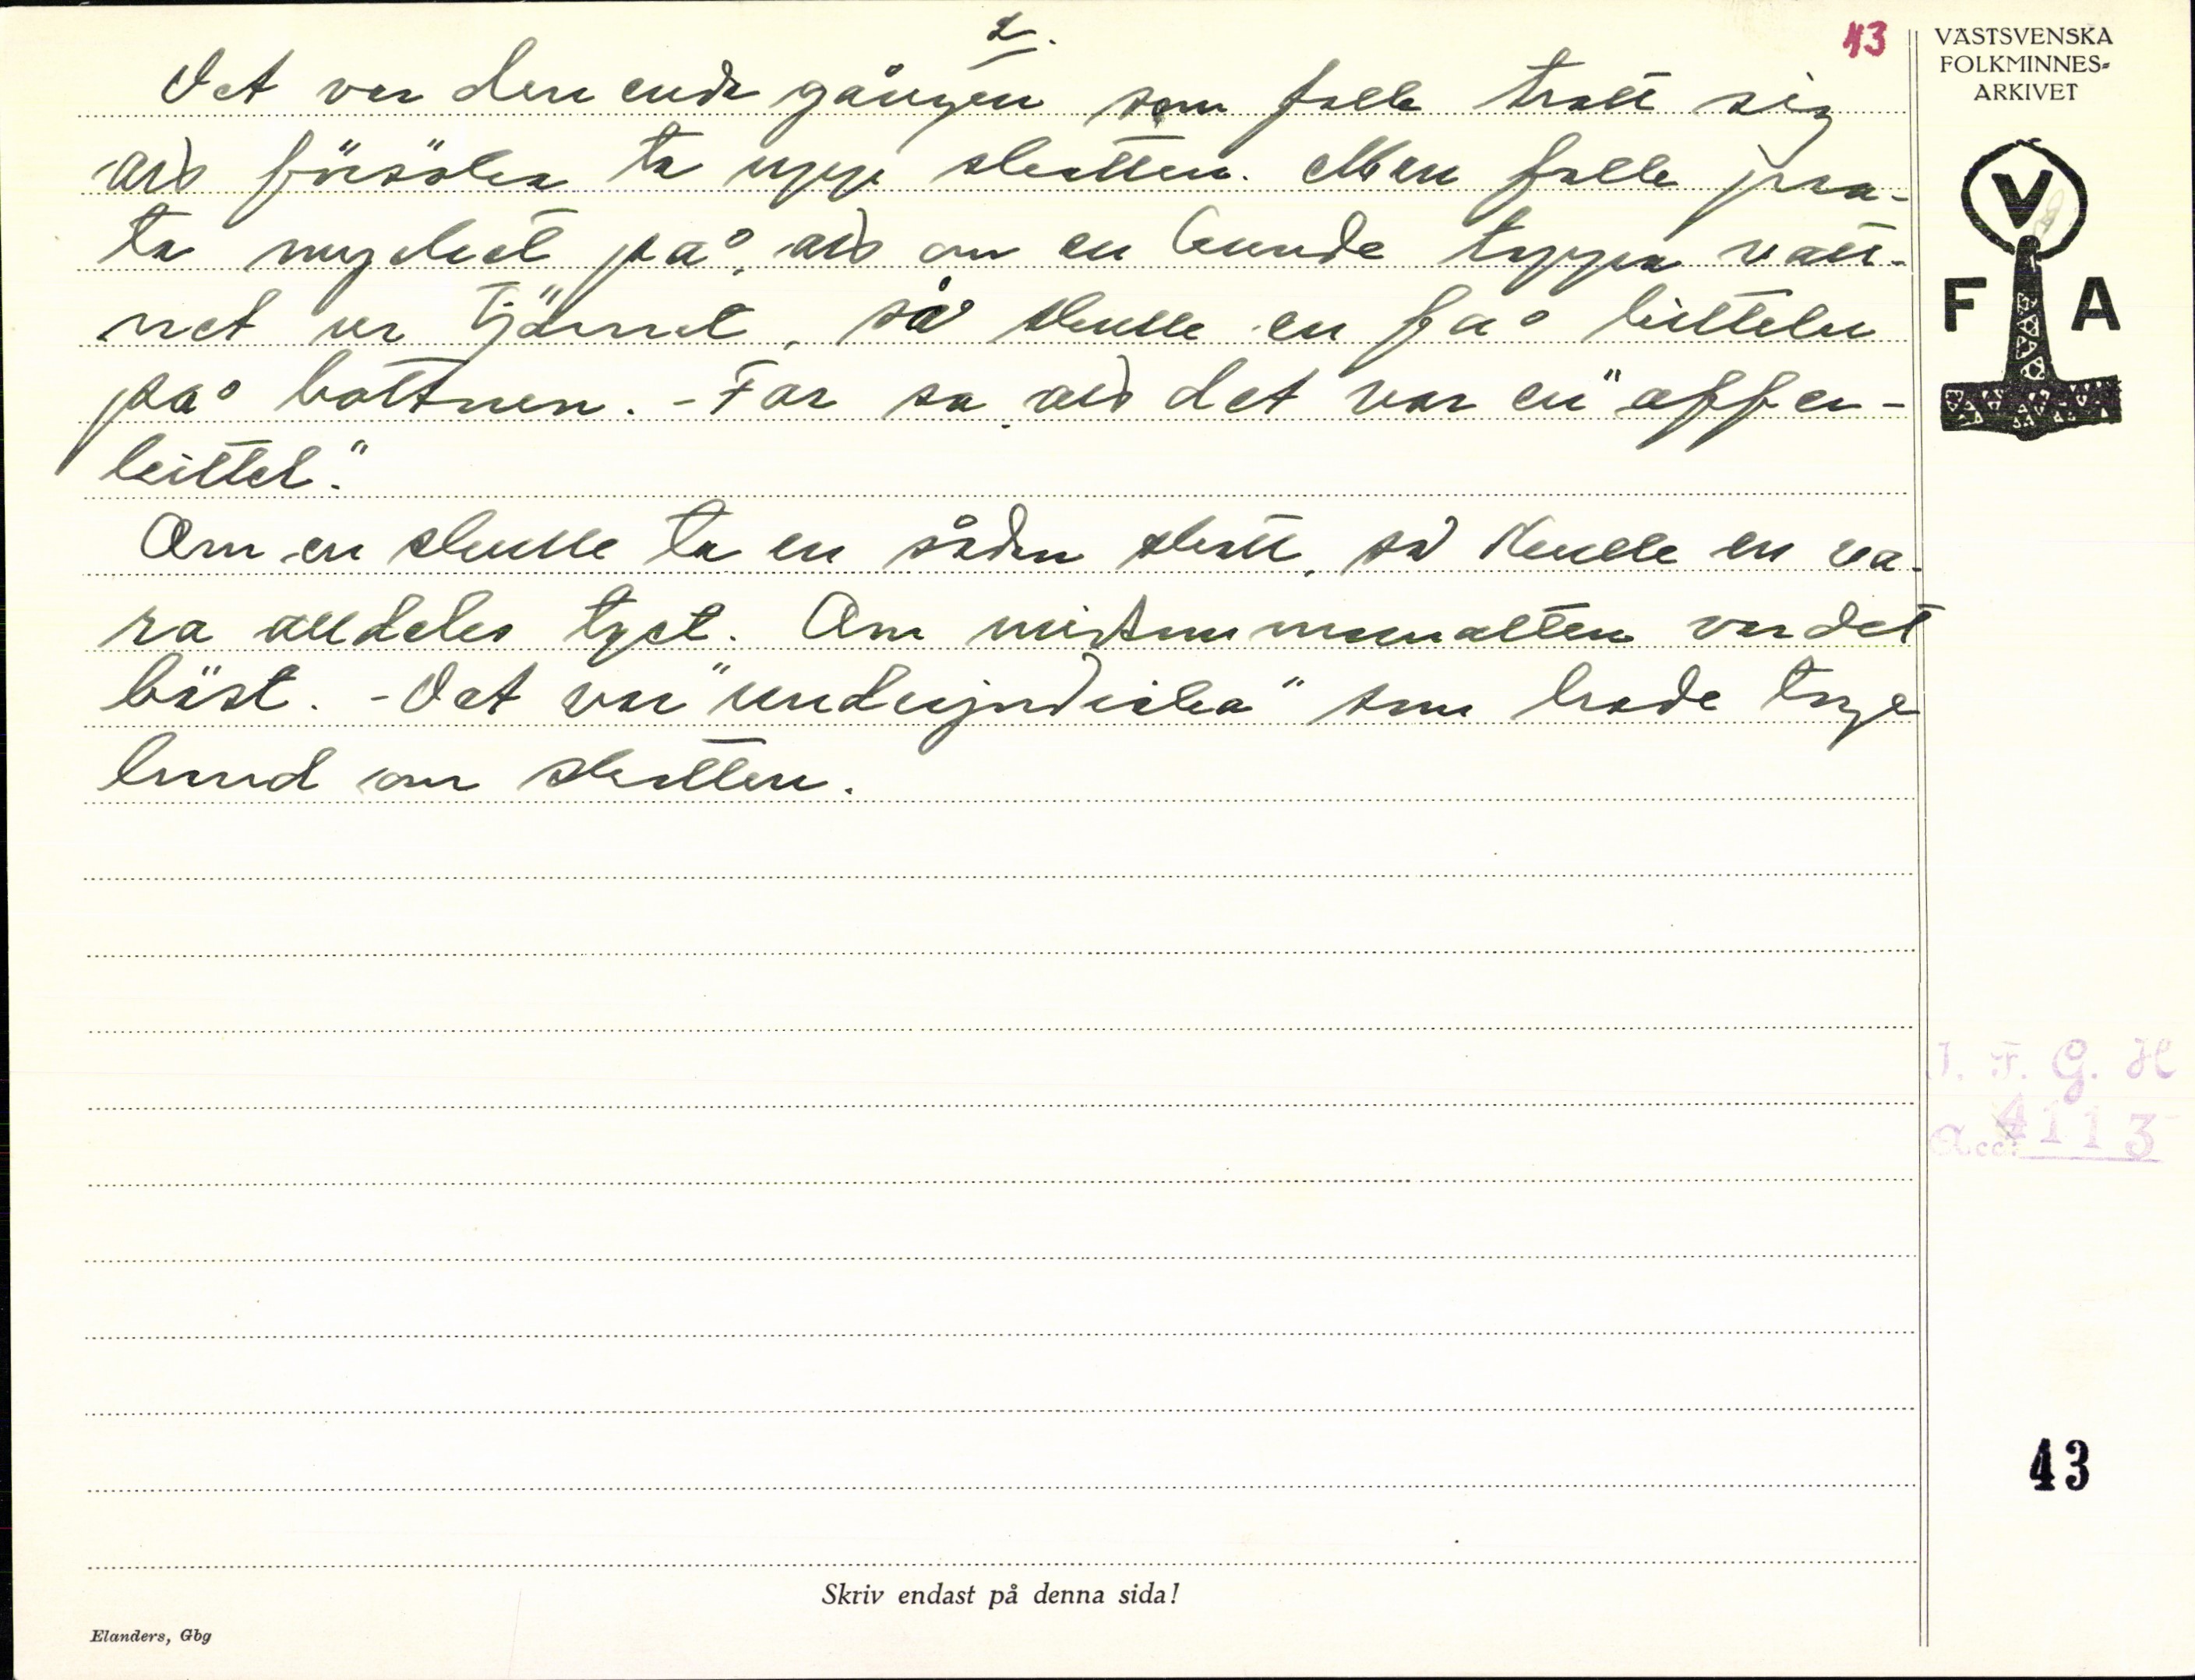 2.
43
VÄSTSVENSKA
FOLKMINNES-
ARKIVET
Det var den enda gången som folk trott sig
försöka ta upp skatten. Men folk pra-
ta mycket på, om en kunde tappa vatt-
net ur tjärnet, så skulle en få kitteln
på bottnen. - Far sa det var en "offer-
kittel".
Om en skulle ta en sådan skatt, så skulle en va-
ra alldeles tyst. Om midsommarnatten var det
bäst. - Det var "underjordiska" som hade tage
hand om skatten.
V
F A
I. F. G. H
Acc. 4113
43
Skriv endast på denna sida!
Elanders, Gbg